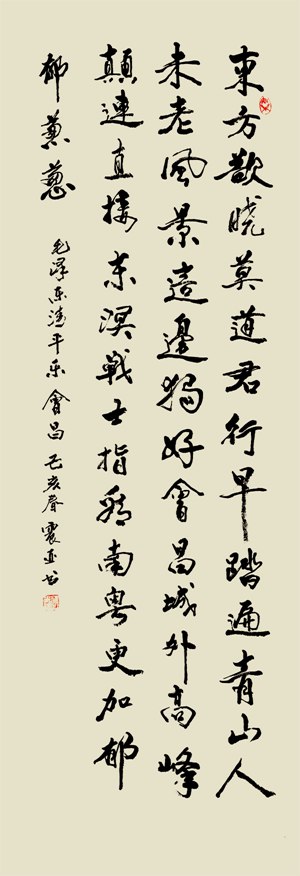 東方欲曉莫道君行早踏遍青山人
未老風景這邊獨好會昌城外高峰
顛連直接东溟戰士指看南粤更加郁
郁蔥蔥
毛澤东清平乐會昌己亥春震亚书